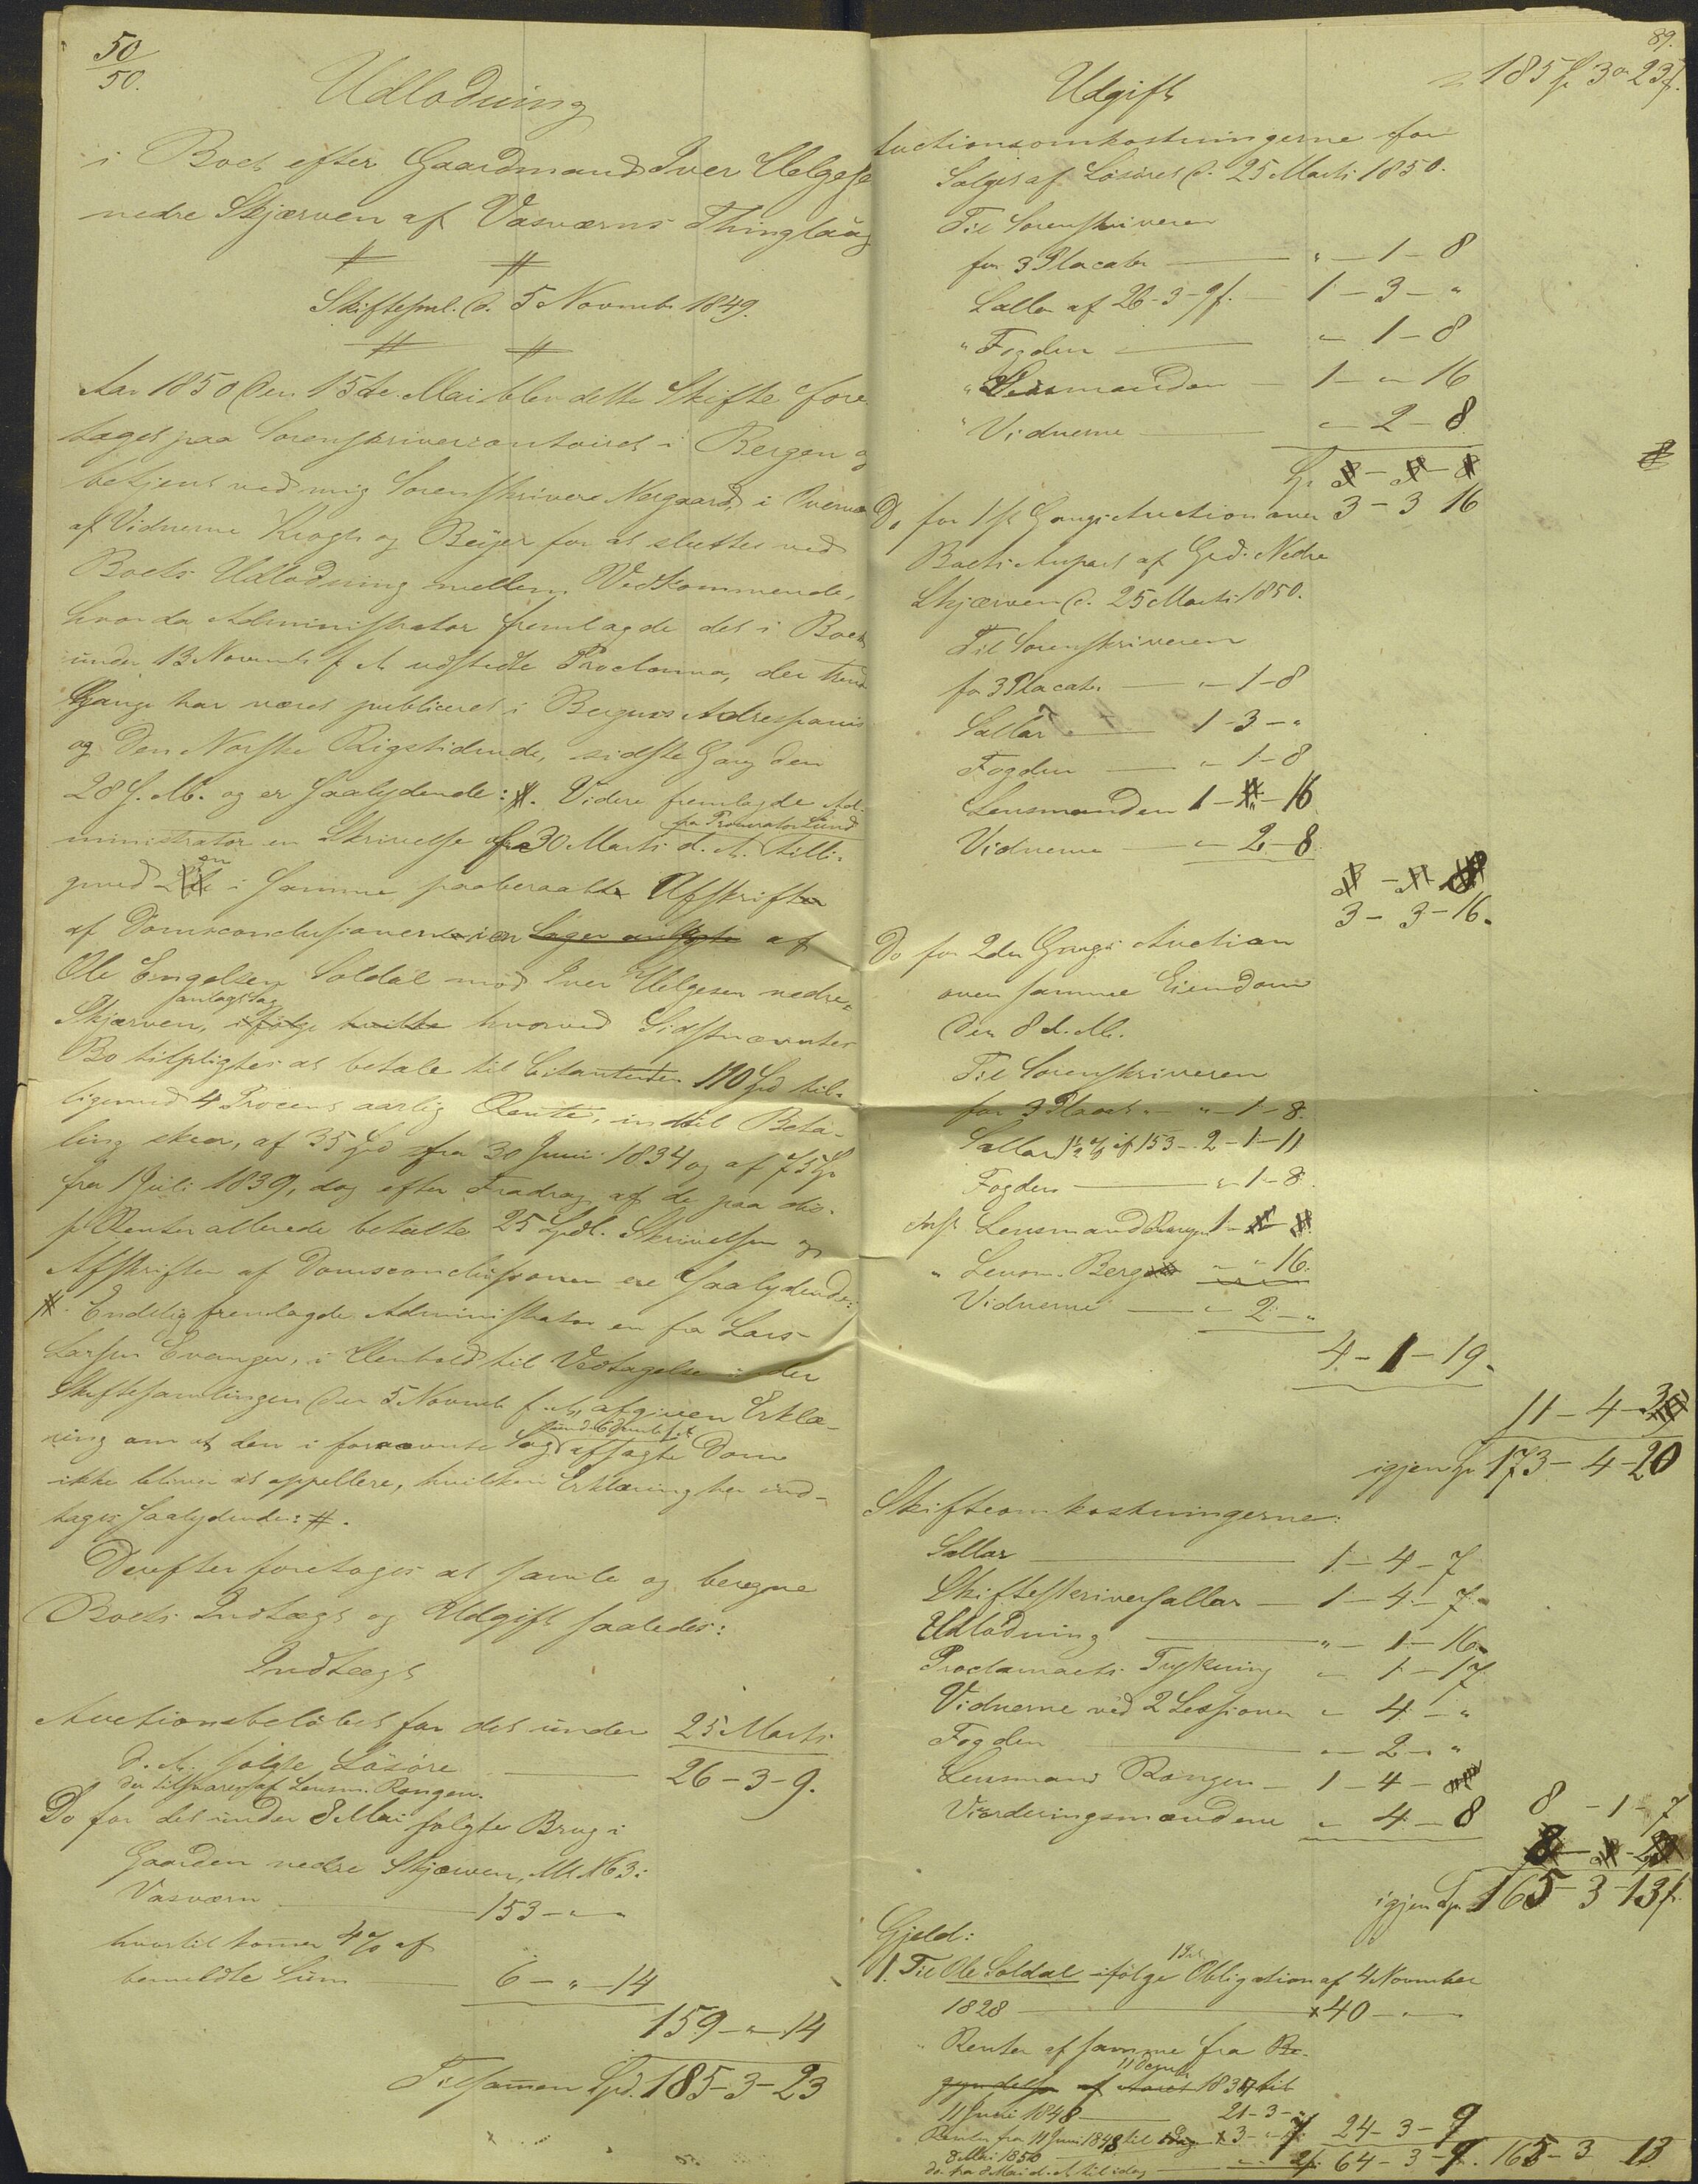 50
50.
Udlodning
i Boet efter Gaardmand Iver Helgesen
nedre Skjærven af Vasværns Thinglaug
Skiftesml. d. 5 Novemb. 1849.
Aar 1850 den 15de Mai blev dette Skifte fore-
taget paa Sorenskrivercontoiret i Bergen og
betjent ved mig Sorenskriver Norgaard, i Overvær
af Vidnerne Krogh og Beyer for at sluttes ved
Boets Udlodning mellem Vedkommende,
hvor da Administrator fremlagde det i Boet
under 13 Novemb. f. A. udstedte Proclama, der trende
Gange har været publiceret i Bergens Adressavis
og Den Norske Rigstidende, sidste Gang den
28 f. M. og er saalydende: #. Videre fremlagde Ad-
fra Procurator Lund
ministrator en Skrivelse fra 30 Marts d. A. tilli-
gemed en i samme paaberaabt Afskrift
af Domsconclusionen i en Sag anlagt af
Ole Engelsen Soldal mod Iver Helgesen nedre
Skjærven, ifølge hvilke hvorved Sidstnævntes
Bo tilpligtes at betale til Citanten 110 Spd til-
ligemed 4 Procent aarlig Rente, indtil Beta-
ling skeer, af 35 Spd fra 30 Juni 1834 og af 75 Sp
fra 1 Juli 1839, dog efter Fradrag af de paa dis-
se Renter allerede betalte 25 Spdl. Skrivelsen og
Afskriften af Domsconclusionen ere saalydende:
#. Endelig fremlagde Administrator en fra Lars
Larsen Evanger, i Henhold til Vedtagelse i den
Skiftesamlingen den 5 Novemb f. A. afgiven Erklæ-
ring om at den i fornævnte Sag afsagte Dom
ikke bliver at appellere, hvilken Erklæring her ind-
tages saalydende: #.
Derefter foretoges at samle og beregne
Boets Indtægt og Udgift saaledes:
Indtægt
Auctionsbeløbet for det under 25 Marts
d. A. solgte Løsøre 26 - 3 - 9.
der tilsvares af Lensm. Rongen.
Do for det under 8 Mai solgte Brug i
Gaarden nedre Skjærven, M. N. 63:
Vasværn 153 - " - "
hvortil kommer 4% af
bemeldte Sum 6 - " - 14
159 - " - 14
Tilsammen Spd. 185 - 3 - 23
89.
Udgift
185 Sp 3 Ort 23 s.
Auctionsomkostningerne for
Salget af Løsøret d. 25 Marts 1850.
Til Sorenskriveren
for 3 Placater " - 1 - 8
Sallar af 26 - 3 - 9 s. 1 - 3 - "
" Fogden " - 1 - 8
" Lensmanden 1 - " - 16
" Vidnerne " - 2 - 8
3 - 3 16
Do for 1ste Gangs Auction over
Boets Anpart af Grd. Nedre
Skjærven d. 25 Marts 1850.
Til Sorenskriveren
for 3 Placater " - 1 - 8
Sallar 1 - 3 - "
Fogden " - 1 - 8
Lensmanden 1 - " - 16
Vidnerne " - 2 - 8
3 - 3 - 16.
Do for 2den Gangs Auction
over samme Eiendom
den 8 d. M.
Til Sorenskriveren
for 3 Placat. " - 1 - 8.
Sallar 1½ % af 153 - 2 - 1 - 11
Fogden " - 1 - 8
Lensmand Rongen 1 -
" Lensm. Berge " - " 16.
Vidnerne " - 2 - "
4 - 1 - 19.
11 - 4 - 3
igjen Sp 173 - 4 - 20
Skifteomkostningerne:
Sallar 1 - 4 - 7
Skifteskriversallar 1 - 4 - 7
Udlodning " - 1 - 16
Proclamaets Trykning " - 1 - 17
Vidnerne ved 2 Sessioner " 4 - "
Fogden " - 2 - "
Lensmand Rongen 1 - 4 -
Vurderingsmændene " 4 - 8
8 - 1 - 7
igjen Sp. 165 - 3 - 13 s.
Gjeld:
1. Til Ole Soldal ifølge Obligation af 4 November
1828 40 - " -
" Renter af samme fra Be-
gyndelsen af Aaret 1834 til
11 Juni 1848 21 - 3 - "
Renter fra 11 Juni 1848 til 24 - 3 - 9
8 Mai 1850
do fra 8 Mai d. A. til idag 64 - 3 - 9. 165 - 3 13